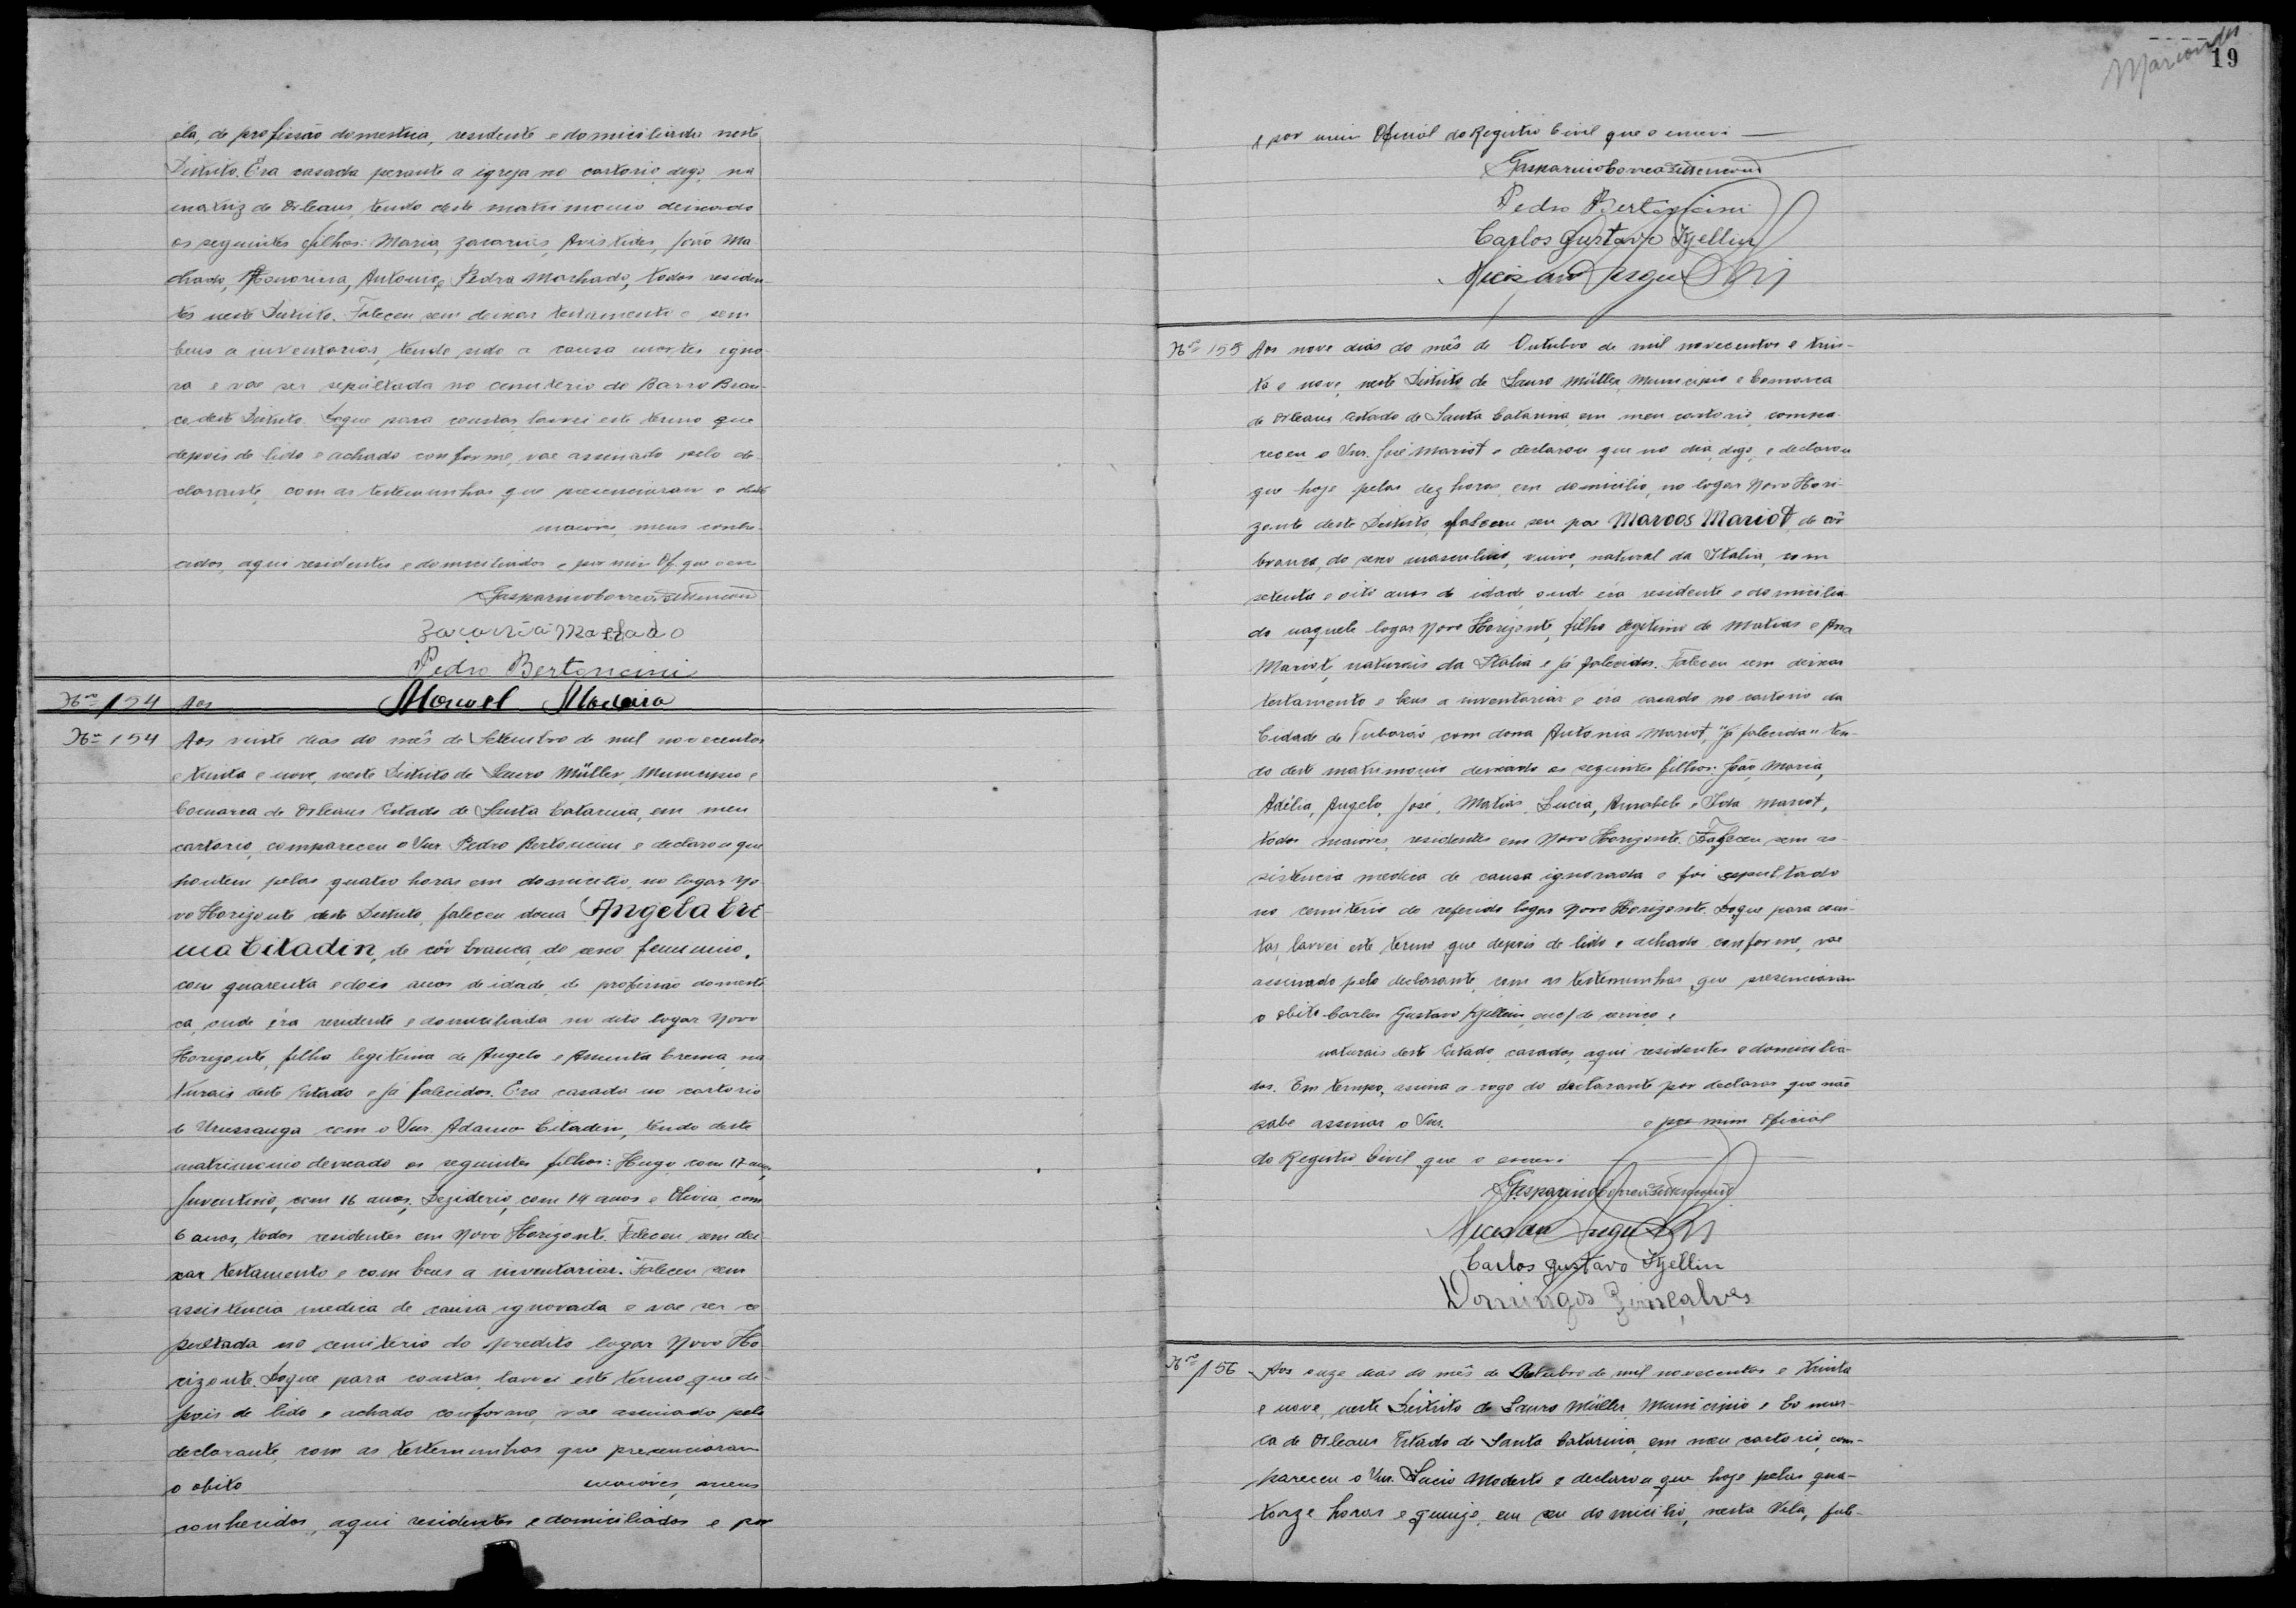 éla, de profissão domestica, residente e domiciliada neste
Distrito. Era casada perante a igreja no cartorio, digo, na
matriz de Orleans, tendo deste matrimonio deixado
os seguintes filhos: Maria, Zacarias, Aristides, João Ma-
chado, Honorina, Antonio, e Pedro Machado, todos residen-
tes neste Distrito. Faleceu sem deixar testamento e sem
bens a inventariar, tendo sido a causa mortes igno-
ra e vae ser sepultada no cemiterio de Barro Bran-
co deste Distrito. Do que para constar, lavrei este termo que
depois de lido e achado conforme, vae assinado pelo de-
clarante, com as testemunhas que presenciaram o obito
maiores, meus conhe-
cidos, aqui residentes e domiciliados e por mim Of. que o escr
Gasparino Correa
Zacaria Machado
Pedro Bertoncini
Nº 154 Aos
Manoel Madeira
Nº 154 Aos vinte dias do mês de Setembro de mil novecentos
e trinta e nove, neste Distrito de Lauro Müller, Municipio e
Comarca de Orleans Estado de Santa Catarina, em meu
cartorio, compareceu o Snr. Pedro Bertoncini e declarou que
hontem pelas quatro horas em domicilio, no logar No-
vo Horizonte deste Distrito, faleceu dona Angela Cre-
ma Citadin, de côr branca, do sexo feminino,
com quarenta e dois anos de idade, de profissão domesti
ca, onde éra residente e domiciliada no dito logar Novo
Horizonte, filha legitima de Angelo e Assunta Crema, na
turais deste Estado e já falecidos. Era casada no cartorio
de Urussanga com o Snr. Adamo Citadin, tendo deste
matrimonio deixado os seguintes filhos: Hugo, com 17 anos,
Juventino, com 16 anos, Deziderio, com 14 anos e Olivia, com
6 anos, todos residentes em Novo Horizonte. Faleceu sem dei
xar testamento e com bens a inventariar. Faleceu sem
assistencia medica de causa ignorada e vae ser se
pultada no cemiterio do predito logar Novo Ho
rizonte. Do que para constar, lavrei este termo que de-
pois de lido e achado conforme, vae assinado pelo
declarante, com as testemunhas que presenciaram
o obito maiores, meus
conhecidos, aqui residentes e domiciliados e por
Marcondes
19
e por mim Oficial do Registro Civil que o escrevi
Gasparino Correa
Pedro Bertoncini
Carlos Gustavo Kjellin
Nº 155 Aos nove dias do mês de Outubro de mil novecentos e trin-
ta e nove, neste Distrito de Lauro Müller, Municipio e Comarca
de Orleans Estado de Santa Catarina, em meu cartorio, compa-
receu o Snr. José Mariot e declarou que no dia, digo, e declarou
que hoje pelas dez horas, em domicilio, no logar Novo Hori-
zonte deste Distrito, faleceu seu pae Marcos Mariot, de côr
branca, do sexo masculino, viuvo, natural da Italia, com
setenta e oito anos de idade, onde éra residente e domicilia-
do naquele logar Novo Horizonte, filho legitimo de Matias e Ana
Mariot, naturais da Italia e já falecidos. Faleceu sem deixar
testamento e bens a inventariar e éra casado no cartorio da
Cidade de Tubarão com dona Antonia Mariot, "já falecida" ten-
do deste matrimonio deixado os seguintes filhos: João, Maria,
Adélia, Angelo, José, Matias, Lucia, e Ida Mariot,
todos maiores, residentes em Novo Horizonte. Faleceu sem as-
sistencia medica de causa ignorada e foi sepultado
no cemiterio do referido logar Novo Horizonte. Do que para cons-
tar, lavrei este termo que depois de lido e achado conforme, vae
assinado pelo declarante, com as testemunhas que presenciaram
o obito Carlos Gustavo Kjellin, de serviço e
naturais deste Estado, casados, aqui residentes e domicilia-
dos. Em tempo, assina a rogo do declarante por declarar que não
sabe assinar o Snr. e por mim Oficial
do Registro Civil que o escrevi
Gasparino Correa
Carlos Gustavo Kjellin
Domingos Gonçalves
Nº 156 Aos onze dias do mês de Outubro de mil novecentos e trinta
e nove, neste Distrito de Lauro Müller, Municipio e Comar-
ca de Orleans Estado de Santa Catarina, em meu cartorio, com-
pareceu o Snr. Lucio Modesto e declarou que hoje pelas qua-
torze horas e quinze, em seu domicilio, nesta Vila, fale-